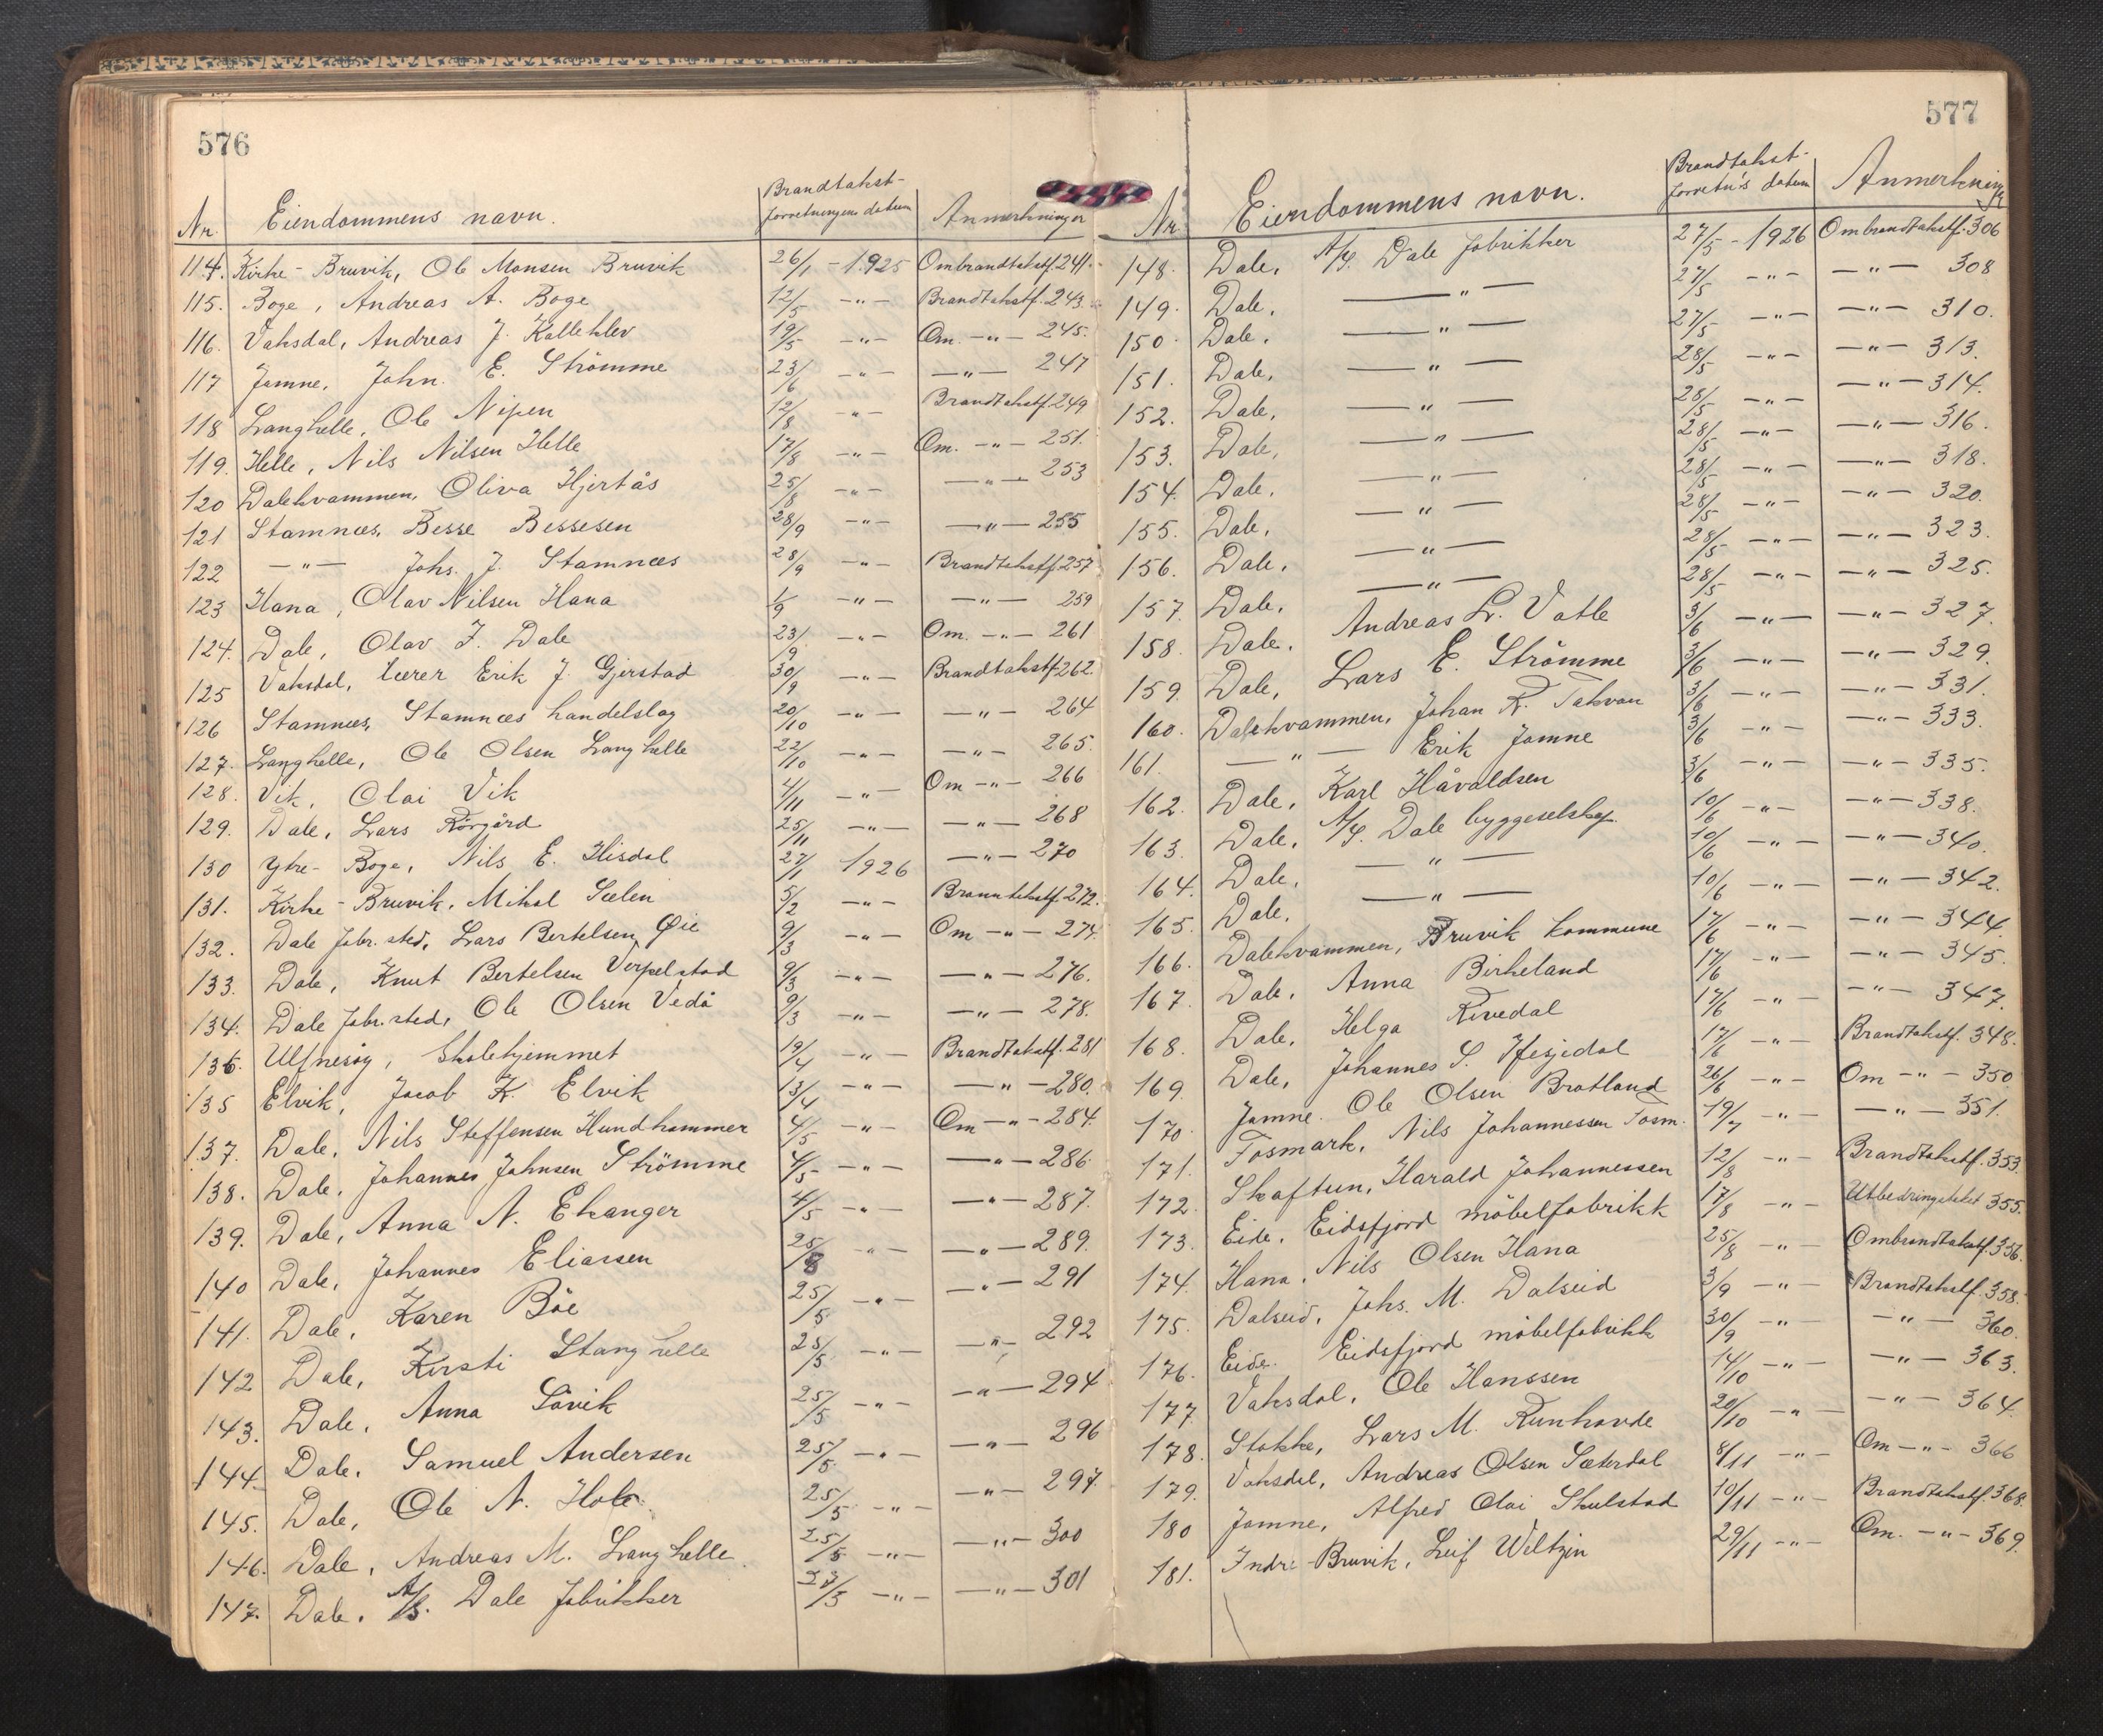 576
Nr. Eiendommens navn. Brandtakst-forretningens datum Anmerkninger
114. Kirke-Bruvik, Ole Monsen Bruvik 26/1 - 1925 Ombrandtakstf. 241.
115. Boge, Andreas A. Boge 12/5 -"- Brandtakstf. 243.
116. Vaksdal, Andreas J. Kalleklev 19/5 -"- Om. -"- 245.
117 Jamne, John. E. Strömme 23/6 -"- -"- 247
118 Langhelle, Ole Nipen 12/8 -"- Brandtakstf. 249
119. Helle, Nils Nilsen Helle 17/8 -"- Om. -"- 251.
120 Dalekvammen, Oliva Hjertås 25/8 -"- -"- 253
121 Stamnæs, Besse Bessesen 28/9 -"- -"- 255
122 -"- Johs. J. Stamnæs 28/9 -"- Brandtakstf. 257
123 Hana, Olav Nilsen Hana 1/9 -"- -"- 259
124. Dale, Olav J. Dale 23/9 -"- Om. -"- 261
125 Vaksdal, lærer Erik J. Gjerstad 30/9 -"- Brandtakstf. 262.
126 Stamnæs, Stamnæs handelslag 20/10 -"- -"- 264
127. Langhelle, Ole Olsen Langhelle 22/10 -"- -"- 265.
128. Vik, Olai Vik 4/11 -"- Om -"- 266
129. Dale, Lars Rörgård 25/11 -"- -"- 268
130 Ytre-Boge, Nils E. Hisdal 27/1 1926 -"- 270
131. Kirke-Bruvik, Mikal Sælen 5/2 -"- Branntakstf. 272.
132. Dale fabr.sted, Lars Bertelsen Øie 9/3 -"- Om -"- 274.
133. Dale, Knut Bertelsen Verpelstad 9/3 -"- -"- 276.
134. Dale fabr.sted, Ole Olsen Vedå 9/3 -"- -"- 278.
136. Ulfnesøy, Skolehjemmet 19/4 -"- Brandtakstf. 281
135 Elvik, Jacob K. Elvik 13/4 -"- -"- 280.
137. Dale, Nils Steffensen Hundhammer 4/5 -"- Om -"- 284.
138. Dale, Johannes Johnsen Strömme 4/5 -"- -"- 286
139. Dale, Anna N. Ekanger 4/5 -"- -"- 287.
140 Dale, Johannes Eliassen 25/8 -"- -"- 289.
141. Dale, Karen Böe 25/5 -"- -"- 291
142 Dale, Kirsti Stanghelle 25/5 -"- -"- 292
143. Dale, Anna Lövik 25/5 -"- -"- 294
144. Dale, Samuel Andersen 25/5 -"- -"- 296
145. Dale, Ole N. Hole 25/5 -"- -"- 297.
146. Dale, Andreas M. Langhelle. 25/5 -"- -"- 300
147. Dale, A/S. Dale Fabrikker 27/5 -"- -"- 301
577
Nr. Eiendommens navn. Brandtakst-forretn's datum Anmerkninger
148. Dale, A/S. Dale Fabrikker 27/5 - 1926 Ombrandtakstf. 306
149. Dale, -"- 27/5 -"- -"- 308
150. Dale, -"- 27/5 -"- -"- 310.
151. Dale, -"- 28/5 -"- -"- 313.
152. Dale, -"- 28/5 -"- -"- 314.
153. Dale, -"- 28/5 -"- -"- 316.
154. Dale, -"- 28/5 -"- -"- 318.
155. Dale, -"- 28/5 -"- -"- 320.
156. Dale, -"- 28/5 -"- -"- 323.
157. Dale, -"- 28/5 -"- -"- 325.
158. Dale, Andreas L. Vatle 3/6 -"- -"- 327.
159. Dale, Lars E. Strömme 3/6 -"- -"- 329.
160. Dalekvammen, Johan K. Takvam 3/6 -"- -"- 331.
161. -"- Erik Jamne 3/6 -"- -"- 333.
162. Dale, Karl Håvaldsen 3/6 -"- -"- 335.
163. Dale, A/S. Dale byggeselskap 10/6 -"- -"- 338.
164. Dale, -"- 10/6 -"- -"- 340.
165. Dale, -"- 10/6 -"- -"- 342.
166. Dalekvammen, Bruvik Kommune 17/6 -"- -"- 344.
167. Dale, Anna Birkeland 17/6 -"- -"- 345.
168. Dale, Helga Rivedal 17/6 -"- -"- 347.
169. Dale, Johannes S. 17/6 -"- Brandtakstf. 348.
170. Jamne. Ole Olsen Bratland 26/6 -"- Om -"- 350.
171. Fosmark, Nils Johannessen Fosm. 19/7 -"- -"- 351.
172. Skaftun, Harald Johannessen 12/8 -"- Brandtakstf. 353.
173. Eide, Eidsfjord möbelfabrikk 17/8 -"- Utbedringstakst 355.
174. Hana, Nils Olsen Hana 25/8 -"- Ombrandtakstf. 356.
175. Dalseid, Johs. M. Dalseid 3/9 -"- Brandtakstf. 358.
176. Eide. Eidsfjord möbelfabrikk 30/9 -"- -"- 360.
177. Vaksdal, Ole Hanssen 14/10 -"- -"- 363.
178. Stokke, Lars M. Runhovde 20/10 -"- -"- 364.
179. Vaksdal, Andreas Olsen Sæterdal 8/11 -"- Om -"- 366
180 Jamne, Alfred Olai Skulstad 10/11 -"- Brandtakstf. 368.
181. Indre-Bruvik, Leif Weltzin 29/11 -"- Om. -"- 369.